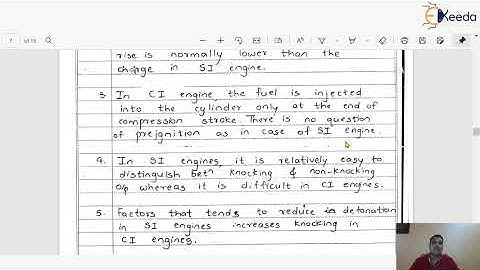 Ekeeda
rise is normally lower than the
charge in SI engine.
3. In CI engine the fuel is injected
into the cylinder only at the end of
compression stroke. There is no question
of preignition as in case of SI engine.
4. In SI engines, it is relatively easy to
distinguish betn knocking & non-knocking
o/p whereas it is difficult in CI engines.
5. Factors that tends to reduce in detonation
in SI engines increases knocking in
CI engines.